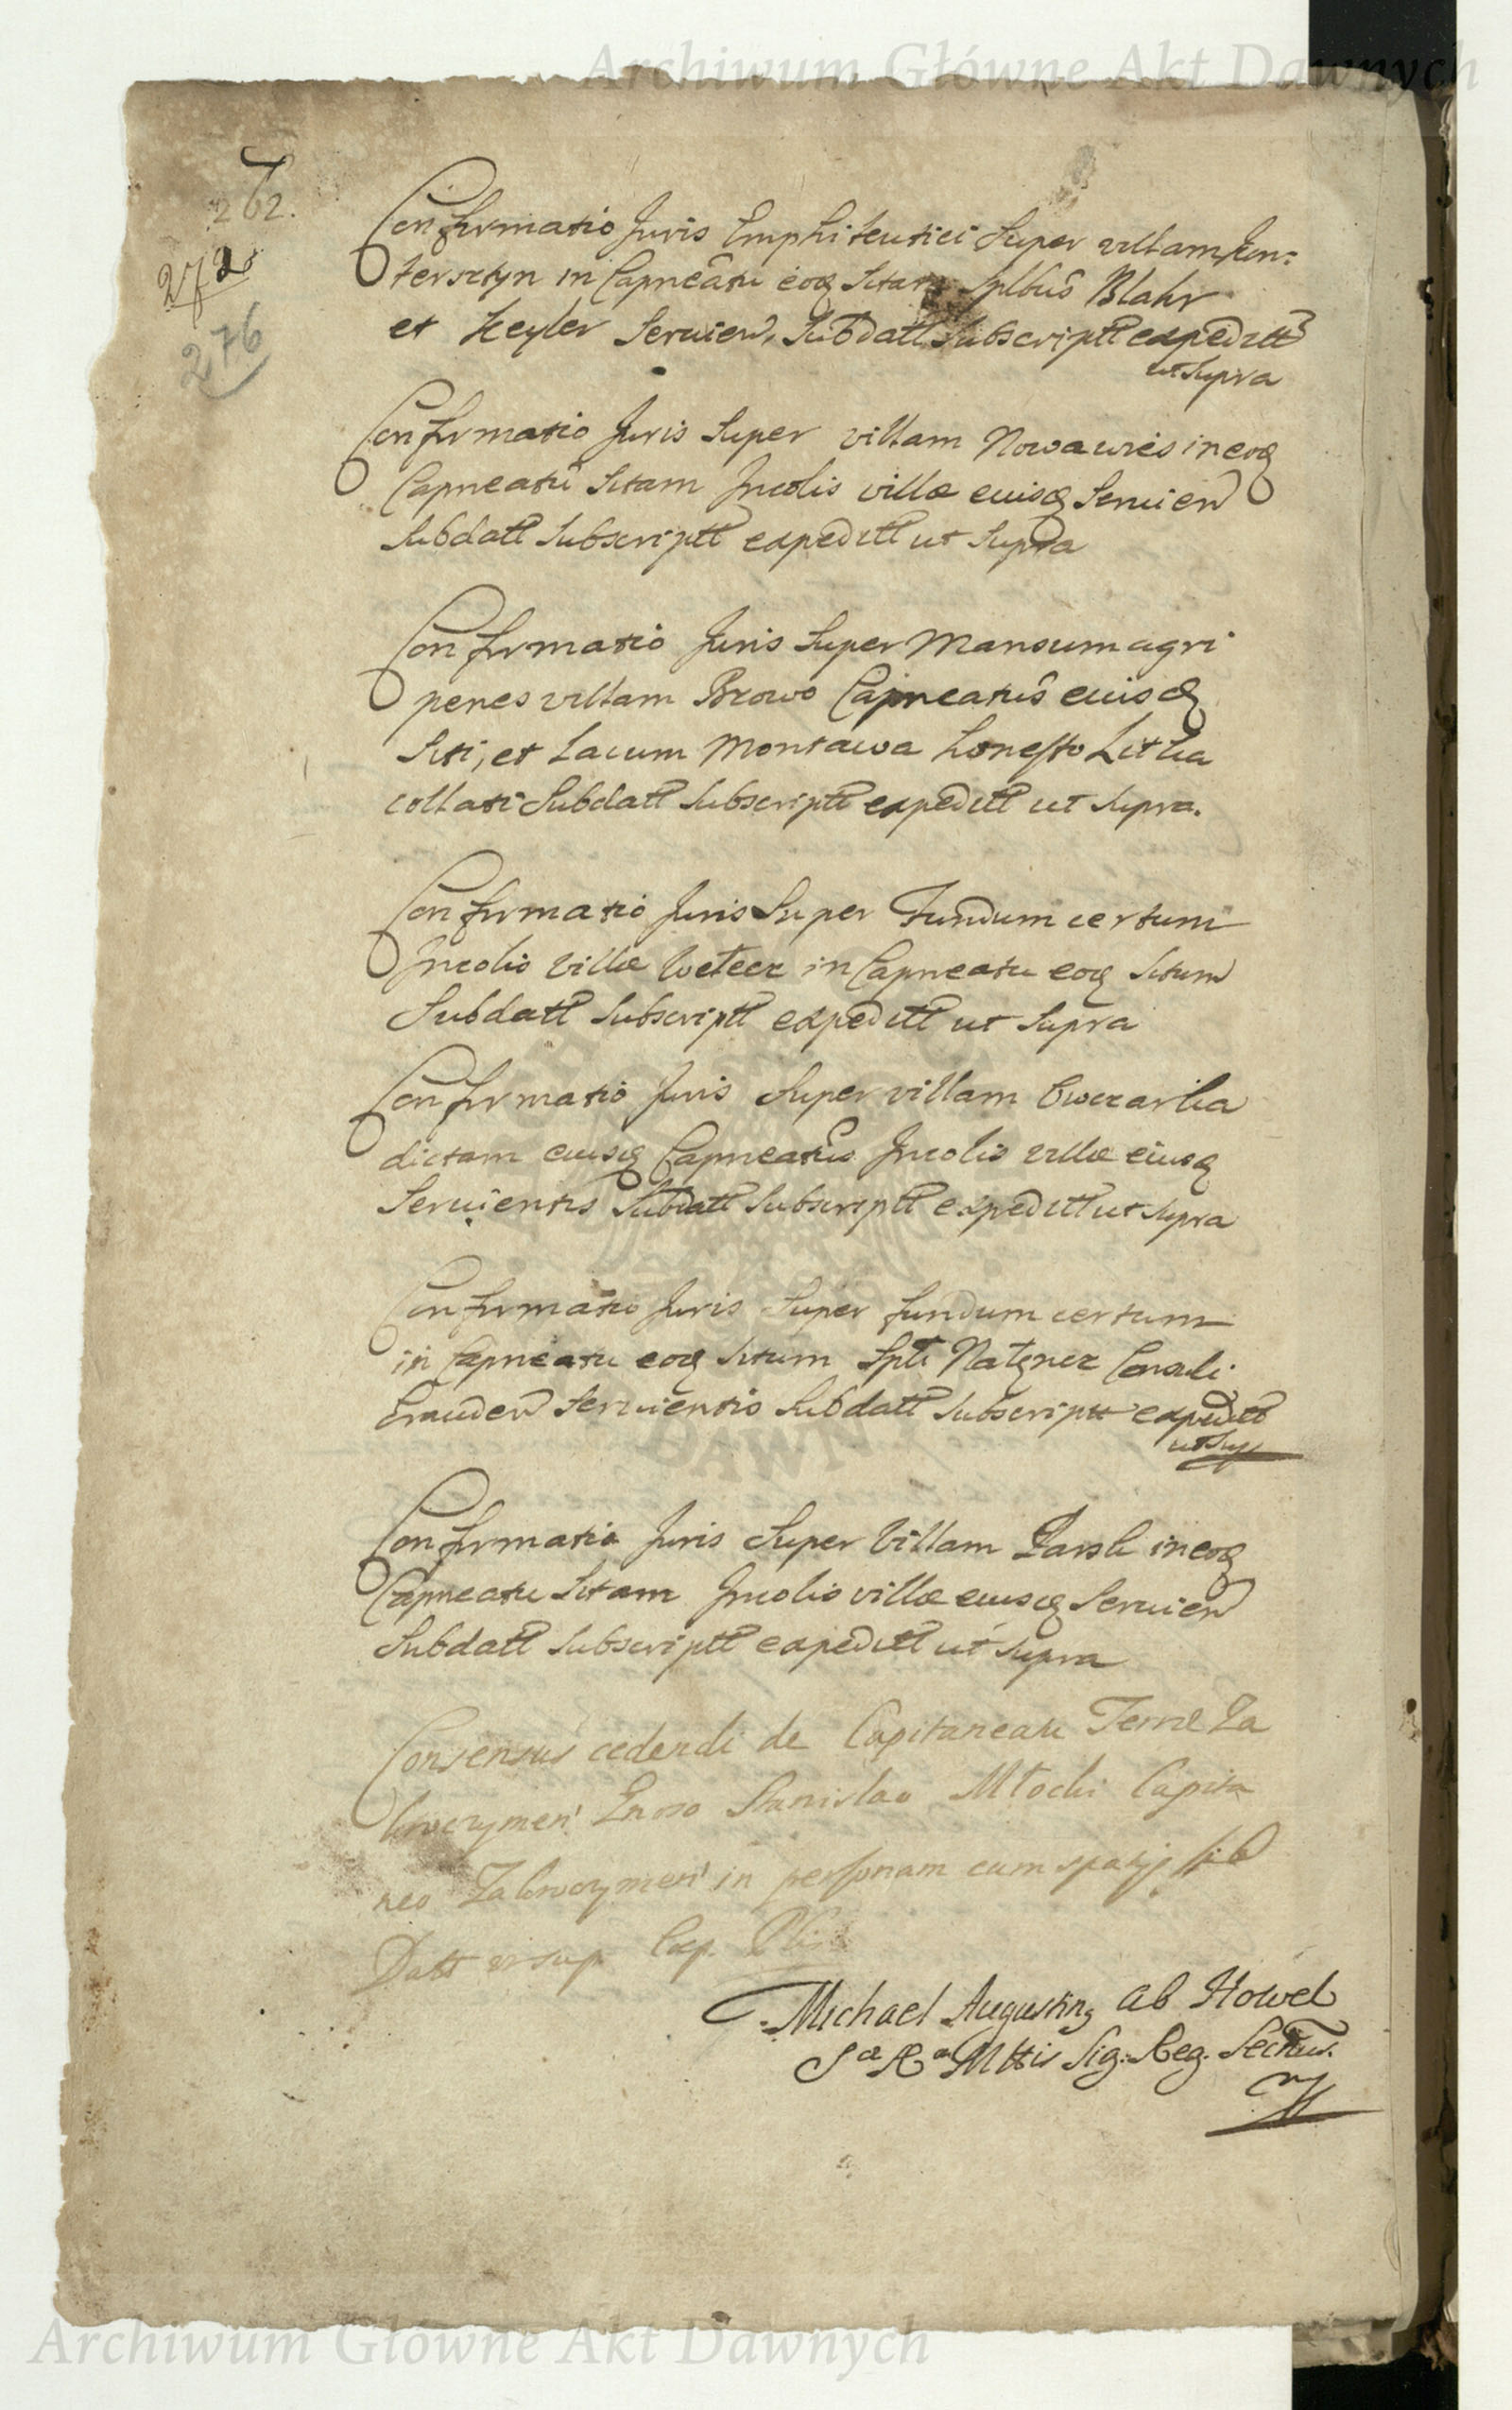 Archiwum Główne Akt Dawnych
262.
272
276
Confirmatio Juris Emphiteutici Super villam Kon:
terschyn in Capneatu eoq Sitam Splbus Blahr
et Heyler Servien, Subdatt Subscriptt expeditt
ut Supra
Confirmatio Juris Super villam Nowawies in eoq
Capneatu Sitam Incolis villæ eiusq Servien
Subdatt Subscriptt expeditt ut Supra
Confirmatio Juris Super Mansum agri
penes villam Mrowo Capneatus eiusq
Siti, et Lacum Montawa honesto Litka
collati Subdatt Subscriptt expeditt ut Supra.
Confirmatio Juris Super Fundum certum
Incolis Villæ in Capneatu eoq Situm
Subdatt Subscriptt expeditt ut Supra
Confirmatio Juris Super villam Owczarka
dictam eiusq Capneatus Incolis villæ eiusq
Servientis Subdatt Subscriptt expeditt ut Supra
Confirmatio Juris Super fundum certum
in Capneatu eoq Situm Splti Natzner Consuli
Grauden Servientis Subdatt Subscriptt expeditt
ut Sup
Confirmatio Juris Super Villam Parsk in eoq
Capneatu Sitam Incolis villæ eiusq Servien
Subdatt Subscriptt expeditt ut supra
Consensus cedendi de Capitaneatu Terræ Za
kroczymen Gnoso Stanislao Mlocki Capita
neo Zakroczymen in personam cum spatijs sub
Datt ut sup Exp.
Michael Augustin9 ab Howel
Sæ Ræ Mttis Sig: Reg. Secrius.
Archiwum Główne Akt Dawnych